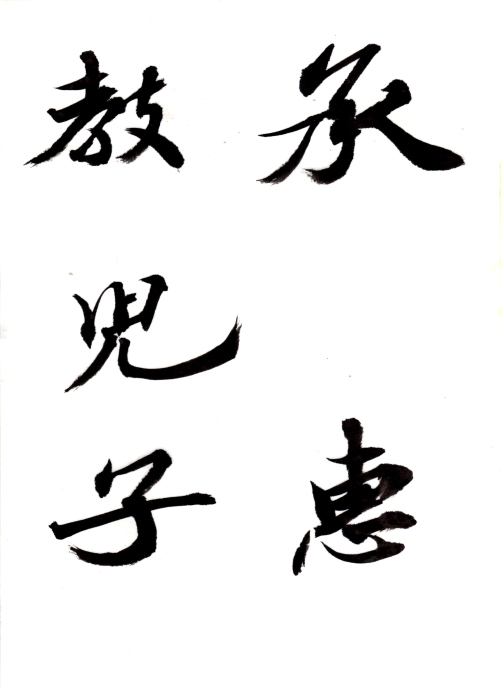 承惠
教兒子